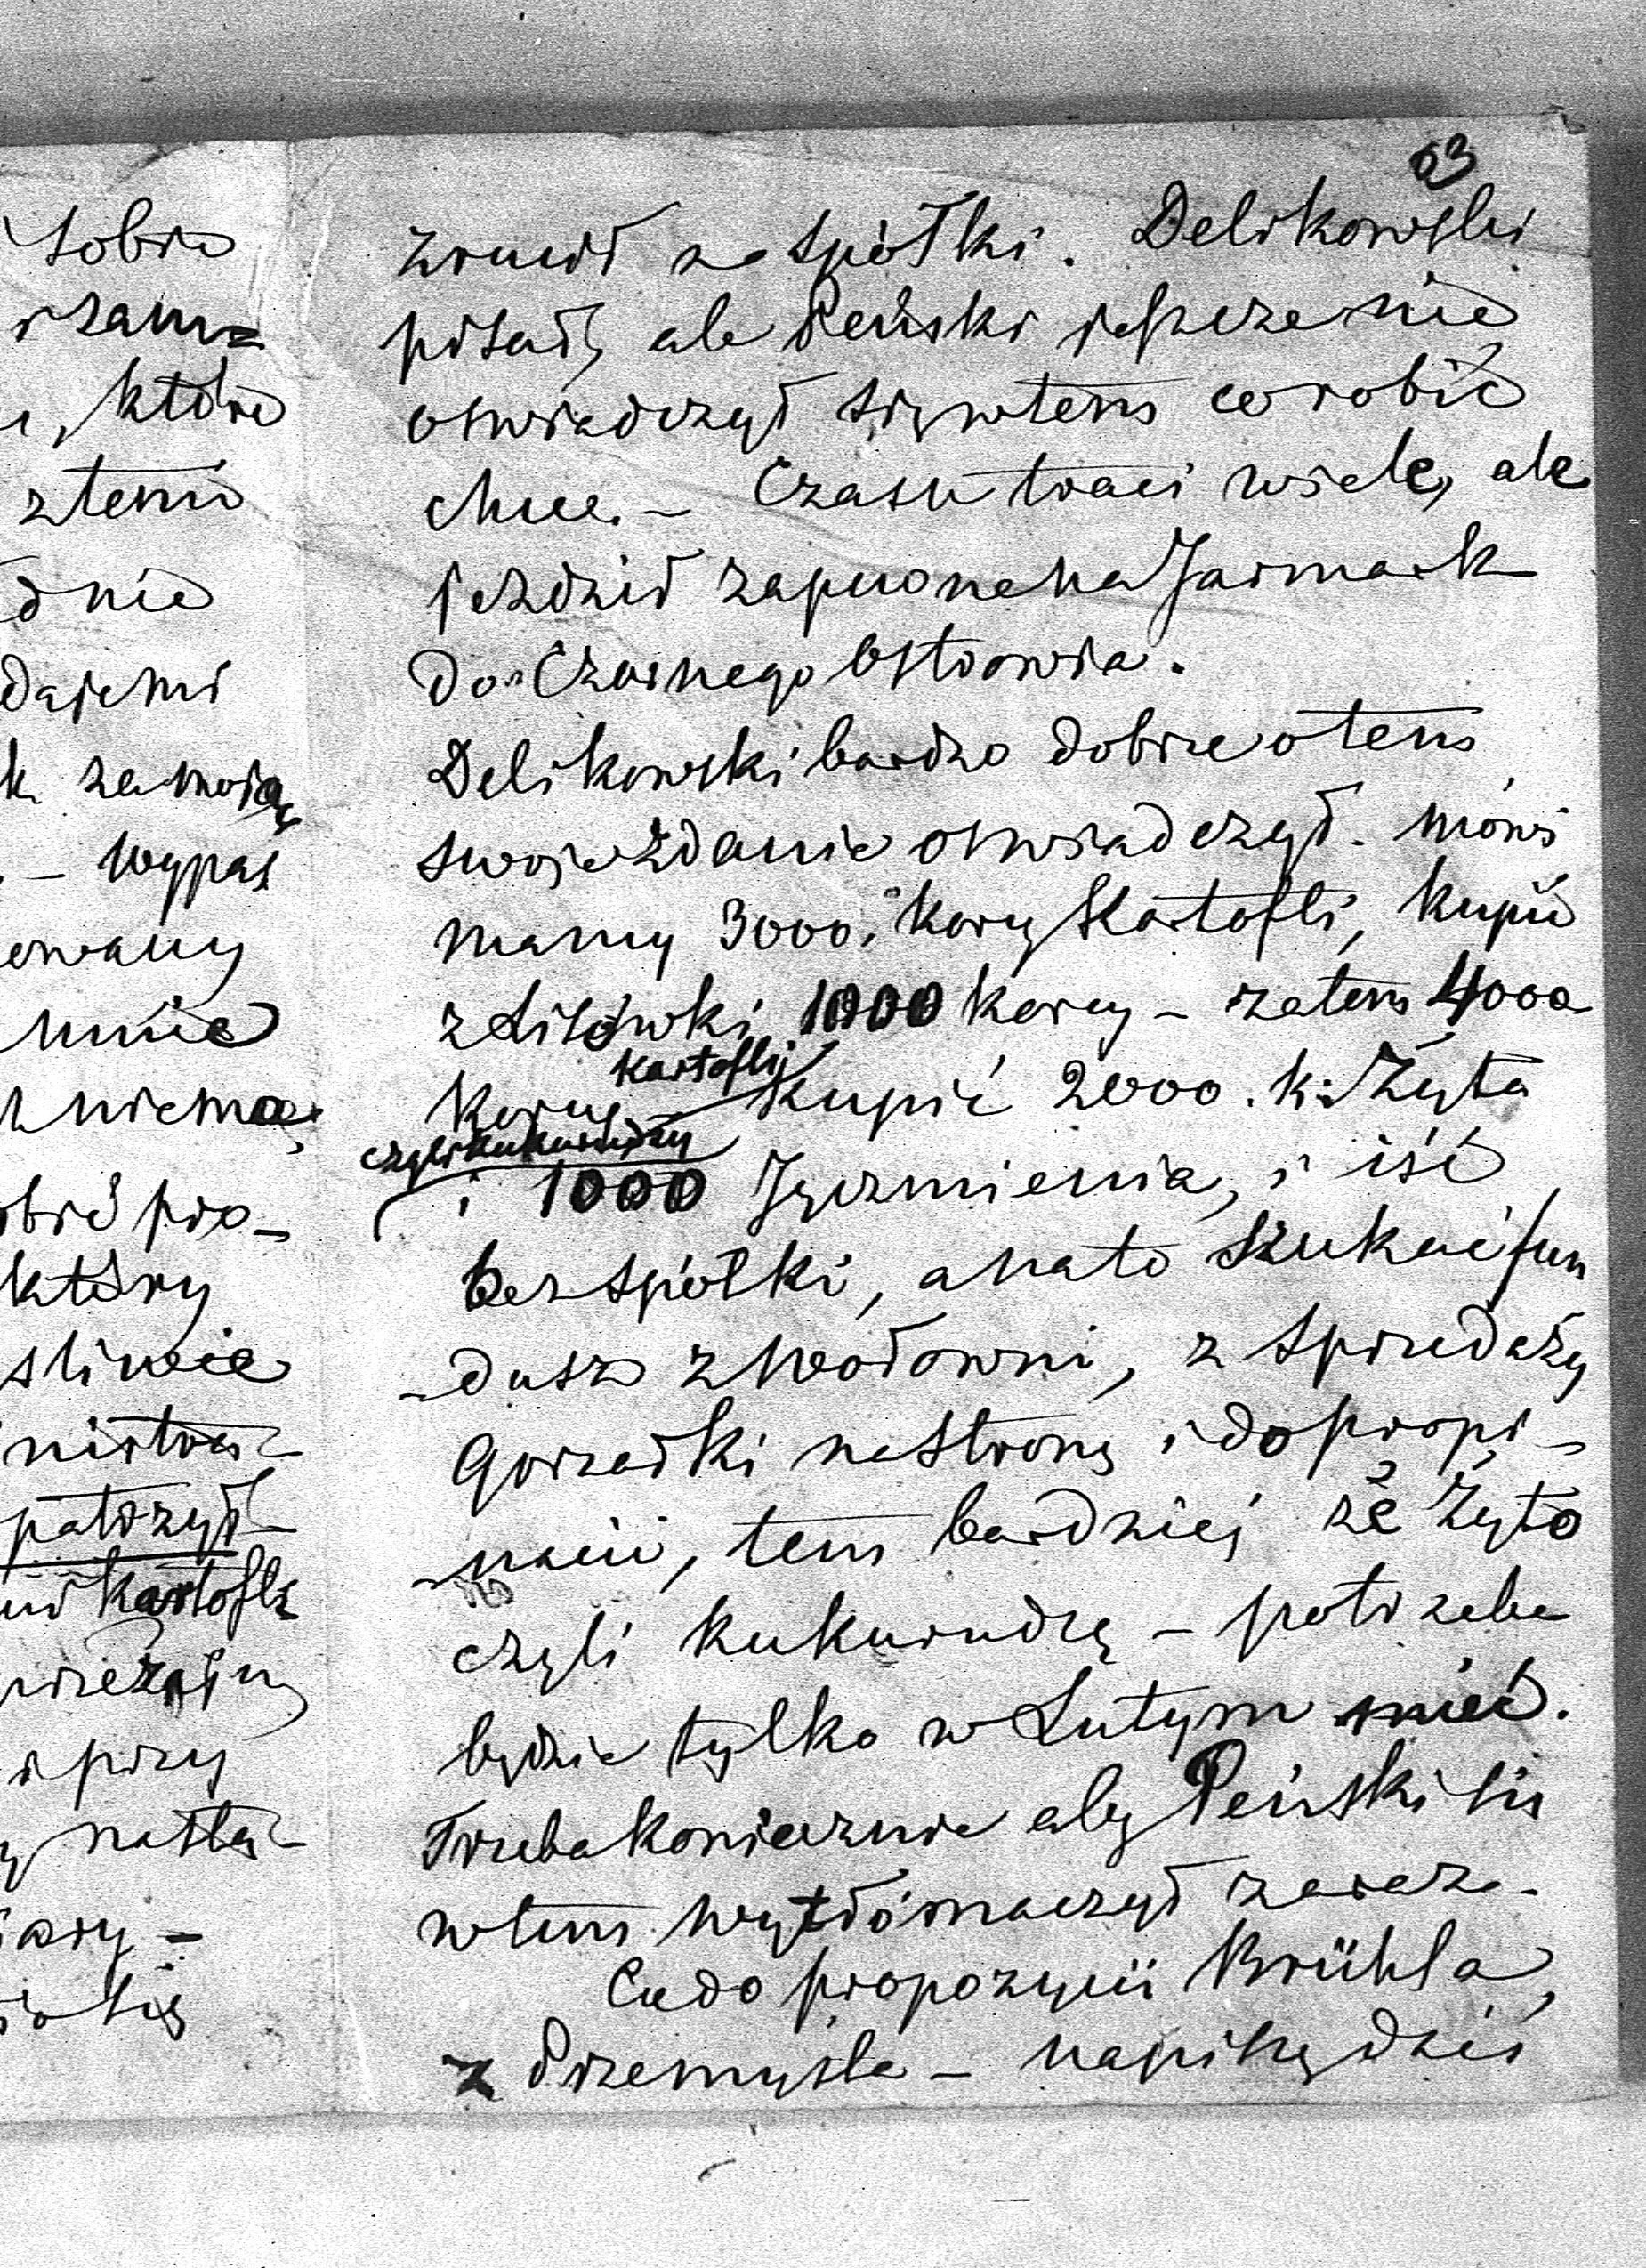 sobie
i zam=
które
z temi
dnie
daje mi
k za moią
– wypas
owany
mnie
niema
obić pro_
który
śliwie
nistra_
patrzył_
kartofle
i przy
nasta_
się
63
zrucił ze spółki. Delikowski
pisał, ale Peński jeszcze nie
oswiadczył się w tem co robić
chce. – Czasu traci wiele, ale
jezdził zapewne na Jarmark
do Czarnego Ostrowia.
Delikowski bardzo dobrze o tem
swoje zdanie oswiadczył. mówi
mamy 3000. korcy Kartofli, kupić
z Lisówki 1000 korcy – zatem 4000
kartofli
korcy – kupić 2000. k: Żyta
czyli kukurudzy
i 1000 Jęczmienia, i iść
bez spółki, a na to szukać fun
-dusz z Wołowni, z sprzedaży
Gorzałki na stronę i do propi-
-nacii, tem bardziej że żyto
czyli kukurudzę – potrzeba
będzie tylko w Lutym mieć.
Trzeba koniecznie aby Peński się
w tem wytłómaczył zaraz.
Co do propozycii Brühla,
z Przemyśla – napiszę dziś